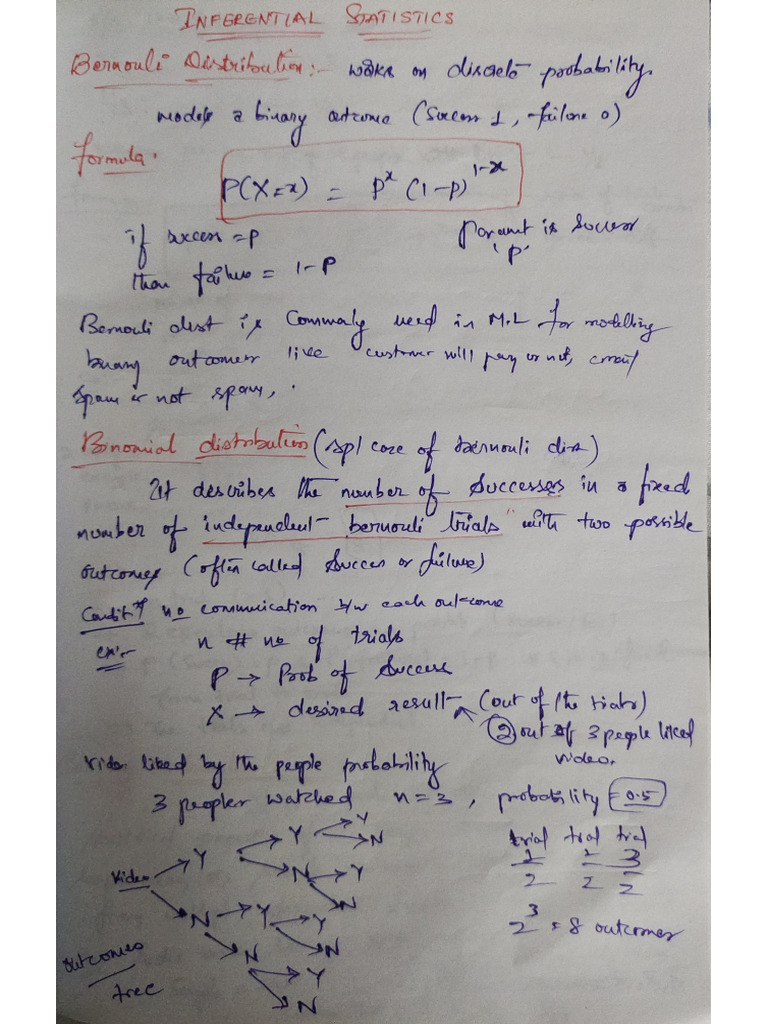 INFERENTIAL STATISTICS
Bernouli Distribution:- works on discrete probability.
models a binary outcome (Success 1, failure 0)
formula.
P(X=x) = p^x (1-p)^1-x
if success = p
than failure = 1-P
is Success
'P'
Bernouli dist is Commonly used in M.L for modelling
binary outcomes like customer will pay or not, email
spam or not spam, .
Binomial distribution (spl case of bernouli dis)
It describes the number of Successes in a fixed
number of independent bernouli trials" with two possible
outcomes (often called Success or failure)
no communication b/w each outcome
ex:- n # no of trials
P → Prob of Success
X → desired result (out of the trials)
2 out of 3 people liked
video.
Video liked by the people probability
3 people watched n = 3, probability = 0.5
Y
Y N
Video Y N Y
N
N Y Y
N
N Y
N
outcomes
tree
trial trial trial
1 2 3
2 2 2
2^3 = 8 outcomes